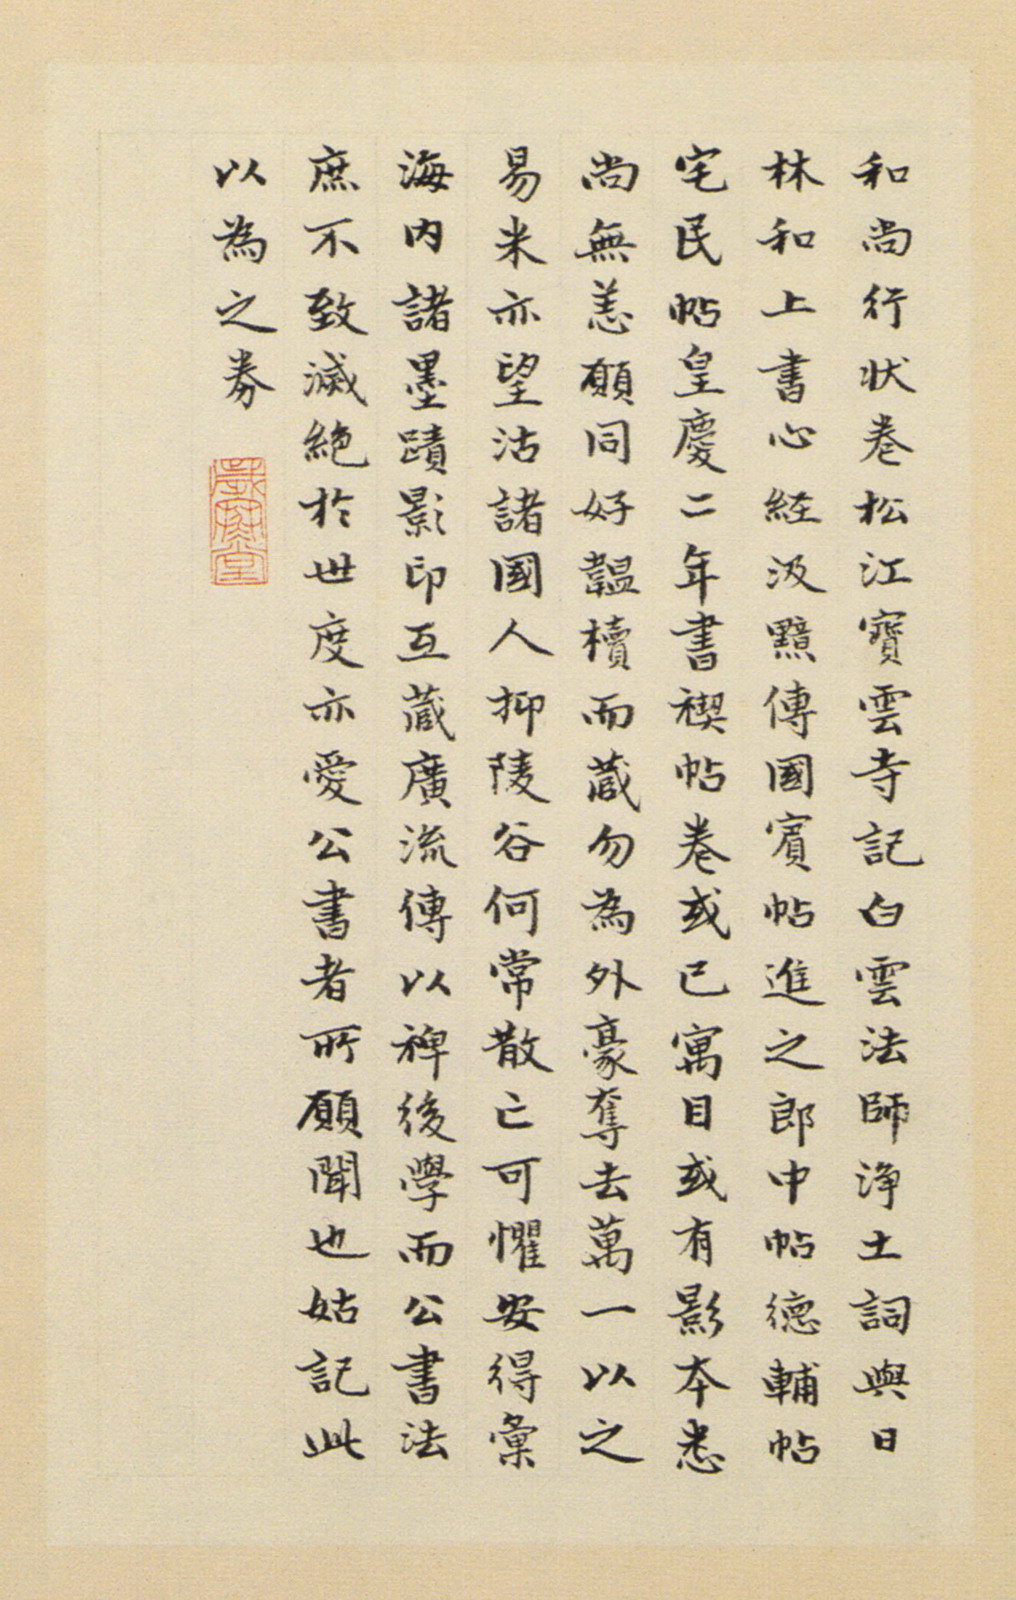 和尚行状卷松江寶雲寺記白雲法師淨土詞與日
林和上書心經汲黯傳國賓帖進之郎中帖德輔帖
宅民帖皇慶二年書禊帖卷或已寓目或有影本悉
尚無恙願同好韞櫝而藏勿為外豪奪去萬一以之
易米亦望沽諸國人抑陵谷何常散亡可懼安得彙
海內諸墨蹟影印互藏廣流傳以裨後學而公書法
庶不致滅絕於世度亦愛公書者所願聞也姑記此
以為之券